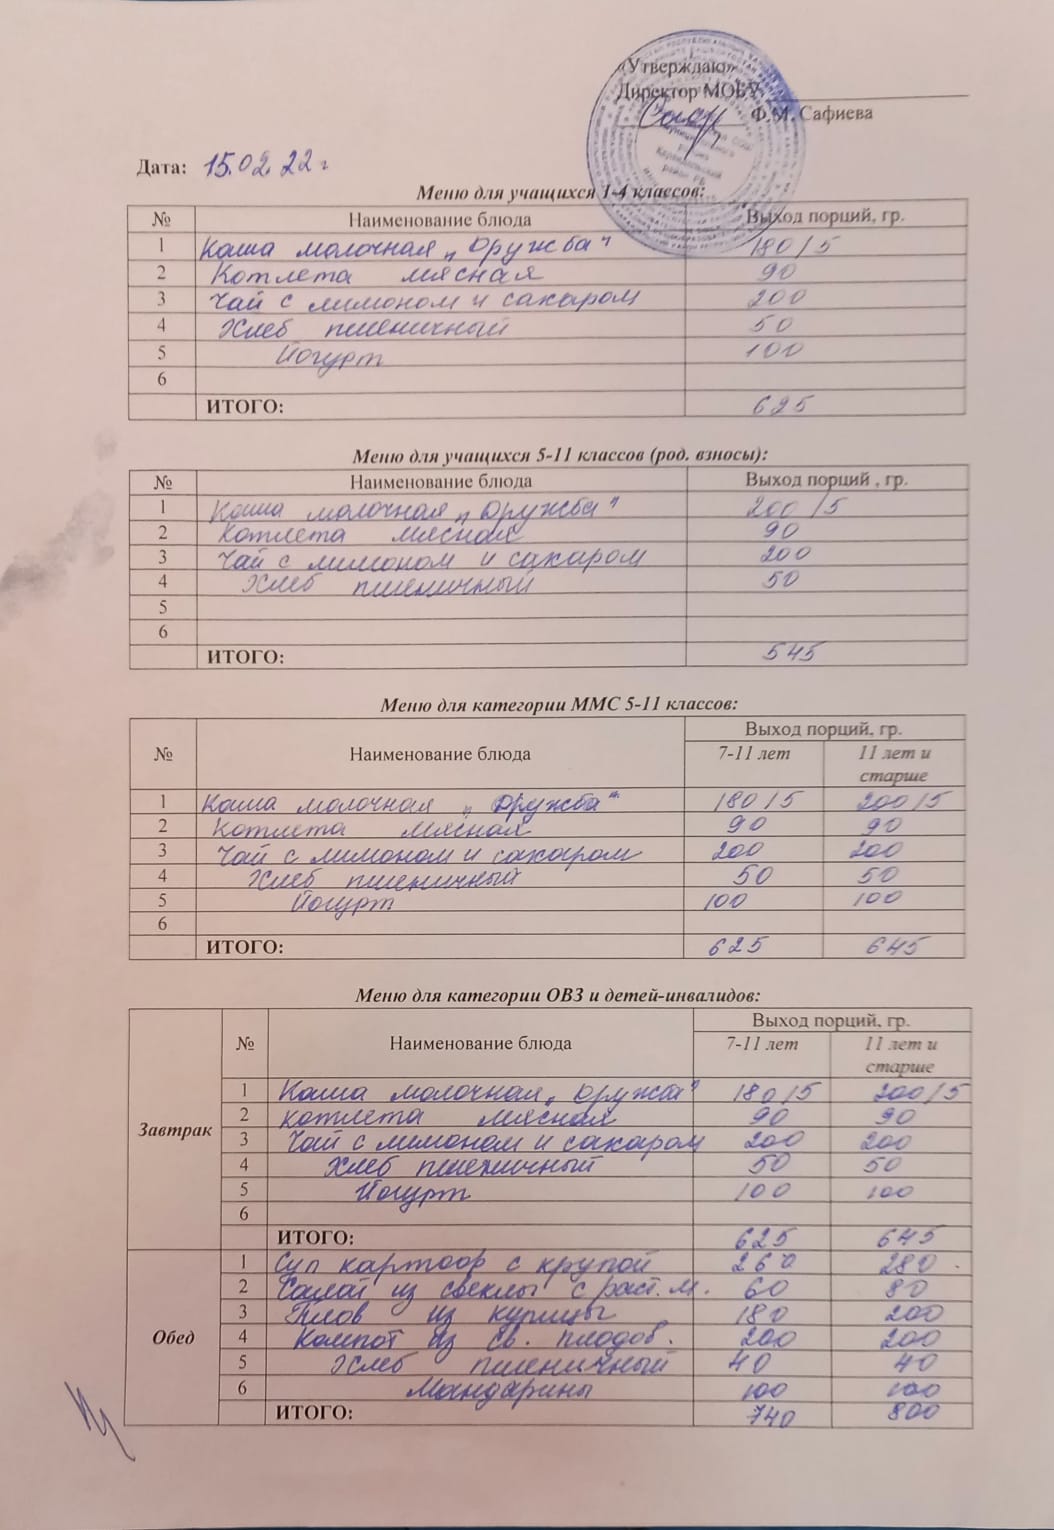 «Утверждаю»
Директор МОБУ
Ф.М. Сафиева
Дата: 15.02.22 г
Меню для учащихся 1-4 классов:
№ Наименование блюда Выход порций, гр.
1 Каша молочная „Дружба" 180/5
2 Котлета мясная 90
3 Чай с лимоном и сахаром 200
4 Хлеб пшеничный 50
5 Йогурт 100
6
ИТОГО: 625
Меню для учащихся 5-11 классов (род. взносы):
№ Наименование блюда Выход порций , гр.
1 Каша молочная „Дружба" 200/5
2 Котлета мясная 90
3 Чай с лимоном и сахаром 200
4 Хлеб пшеничный 50
5
6
ИТОГО: 545
Меню для категории ММС 5-11 классов:
№ Наименование блюда Выход порций, гр.
7-11 лет 11 лет и
старше
1 Каша молочная „Дружба" 180/5 200/5
2 Котлета мясная 90 90
3 Чай с лимоном и сахаром 200 200
4 Хлеб пшеничный 50 50
5 Йогурт 100 100
6
ИТОГО: 625 645
Меню для категории ОВЗ и детей-инвалидов:
№ Наименование блюда Выход порций, гр.
7-11 лет 11 лет и
старше
Завтрак
1 Каша молочная „Дружба" 180/5 200/5
2 Котлета мясная 90 90
3 Чай с лимоном и сахаром 200 200
4 Хлеб пшеничный 50 50
5 Йогурт 100 100
6
ИТОГО: 625 645
Обед
1 Суп картоф с крупой 260 280
2 Салат из свеклы с раст. м. 60 80
3 Плов из курицы 180 200
4 Компот из св. плодов. 200 200
5 Хлеб пшеничный 40 40
6 Мандарины 100 100
ИТОГО: 740 800